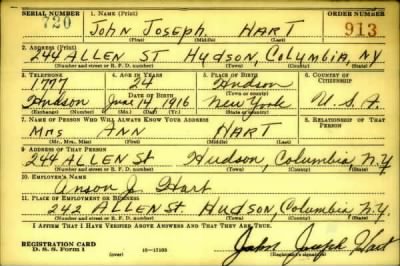 SERIAL NUMBER 1. NAME (Print) ORDER NUMBER
720 John Joseph HART 913
(First) (Middle) (Last)
2. ADDRESS (Print)
244 ALLEN ST Hudson, Columbia, NY
(Number and street or R. F. D. number) (Town) (County) (State)
3. TELEPHONE 4. AGE IN YEARS 5. PLACE OF BIRTH 6. COUNTRY OF CITIZENSHIP
24 Hudson
DATE OF BIRTH (Town or county)
Hudson June 14 1916 New York U.S.A.
(Exchange) (Number) (Mo.) (Day) (Yr.) (State or country)
7. NAME OF PERSON WHO WILL ALWAYS KNOW YOUR ADDRESS 8. RELATIONSHIP OF THAT PERSON
Mrs ANN HART
(Mr., Mrs., Miss) (First) (Middle) (Last)
9. ADDRESS OF THAT PERSON
244 ALLEN St Hudson, Columbia N.Y.
(Number and street or R. F. D. number) (Town) (County) (State)
10. EMPLOYER'S NAME
Anson J. Hart
11. PLACE OF EMPLOYMENT OR BUSINESS
242 ALLEN St. Hudson, Columbia N.Y.
(Number and street or R. F. D. number) (Town) (County) (State)
I AFFIRM THAT I HAVE VERIFIED ABOVE ANSWERS AND THAT THEY ARE TRUE.
REGISTRATION CARD
D. S. S. Form 1 16—17105 John Joseph Hart
(over) (Registrant's signature)